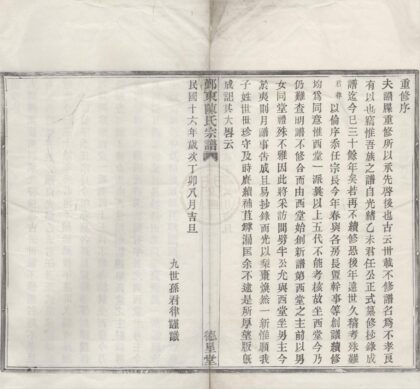 重修序
夫譜牒重修所以承先啓後也古云卅載不修譜名爲不孝良
有以也竊惟吾族之譜自光緒乙未君任公正式纂修抄錄成
譜迄今已三十餘年矣若再不續修恐後年遠世久稽考殊難
君律以倫序忝任宗長今年春與各房長暨幹事等創議續修
均爲同意惟西堂一派冀以上五代不能考核故坐西堂今乃
仍難查明譜不修合而由西堂始創新譜第西堂之主前以男
女同堂禮殊不雅因此將采訪間劈半公允與西堂坐男主今
於夷則月譜事告成且易抄錄而光以梨棗煥然一新惟願我
子姓世世珍守及時賡續補苴罅漏匡余不逮是所厚望版旣
成記其大畧云
民國十六年歲次丁卯八月吉旦
九世孫君律謹識
鄞東陳氏宗譜
德星堂